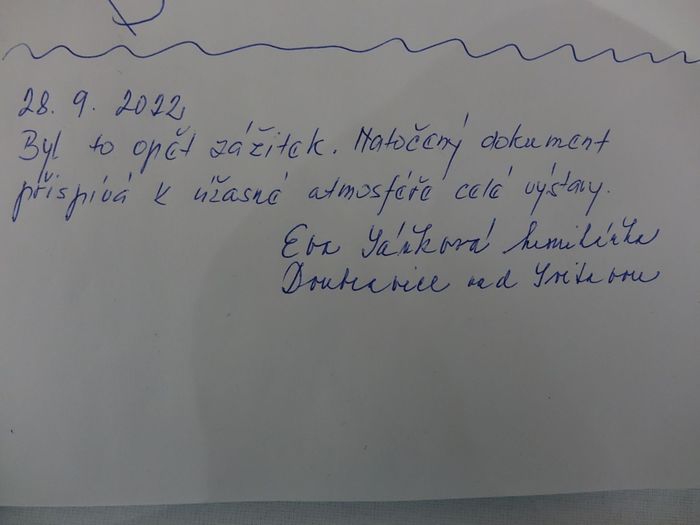 28. 9. 2022
Byl to opět zážitek. Natočený dokument
přispívá k úžasné atmosféře celé výstavy.
Eva
Doubravice nad Svitavou